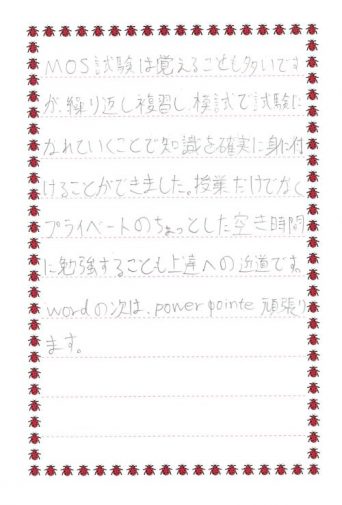 MOS試験は覚えることも多いです
が、繰り返し復習し、模試で試験に
なれていくことで知識を確実に身に付
けることができました。授業だけでなく
プライベートのちょっとした空き時間
に勉強することも上達への近道です。
wordの次は、powerpointe頑張り
ます。